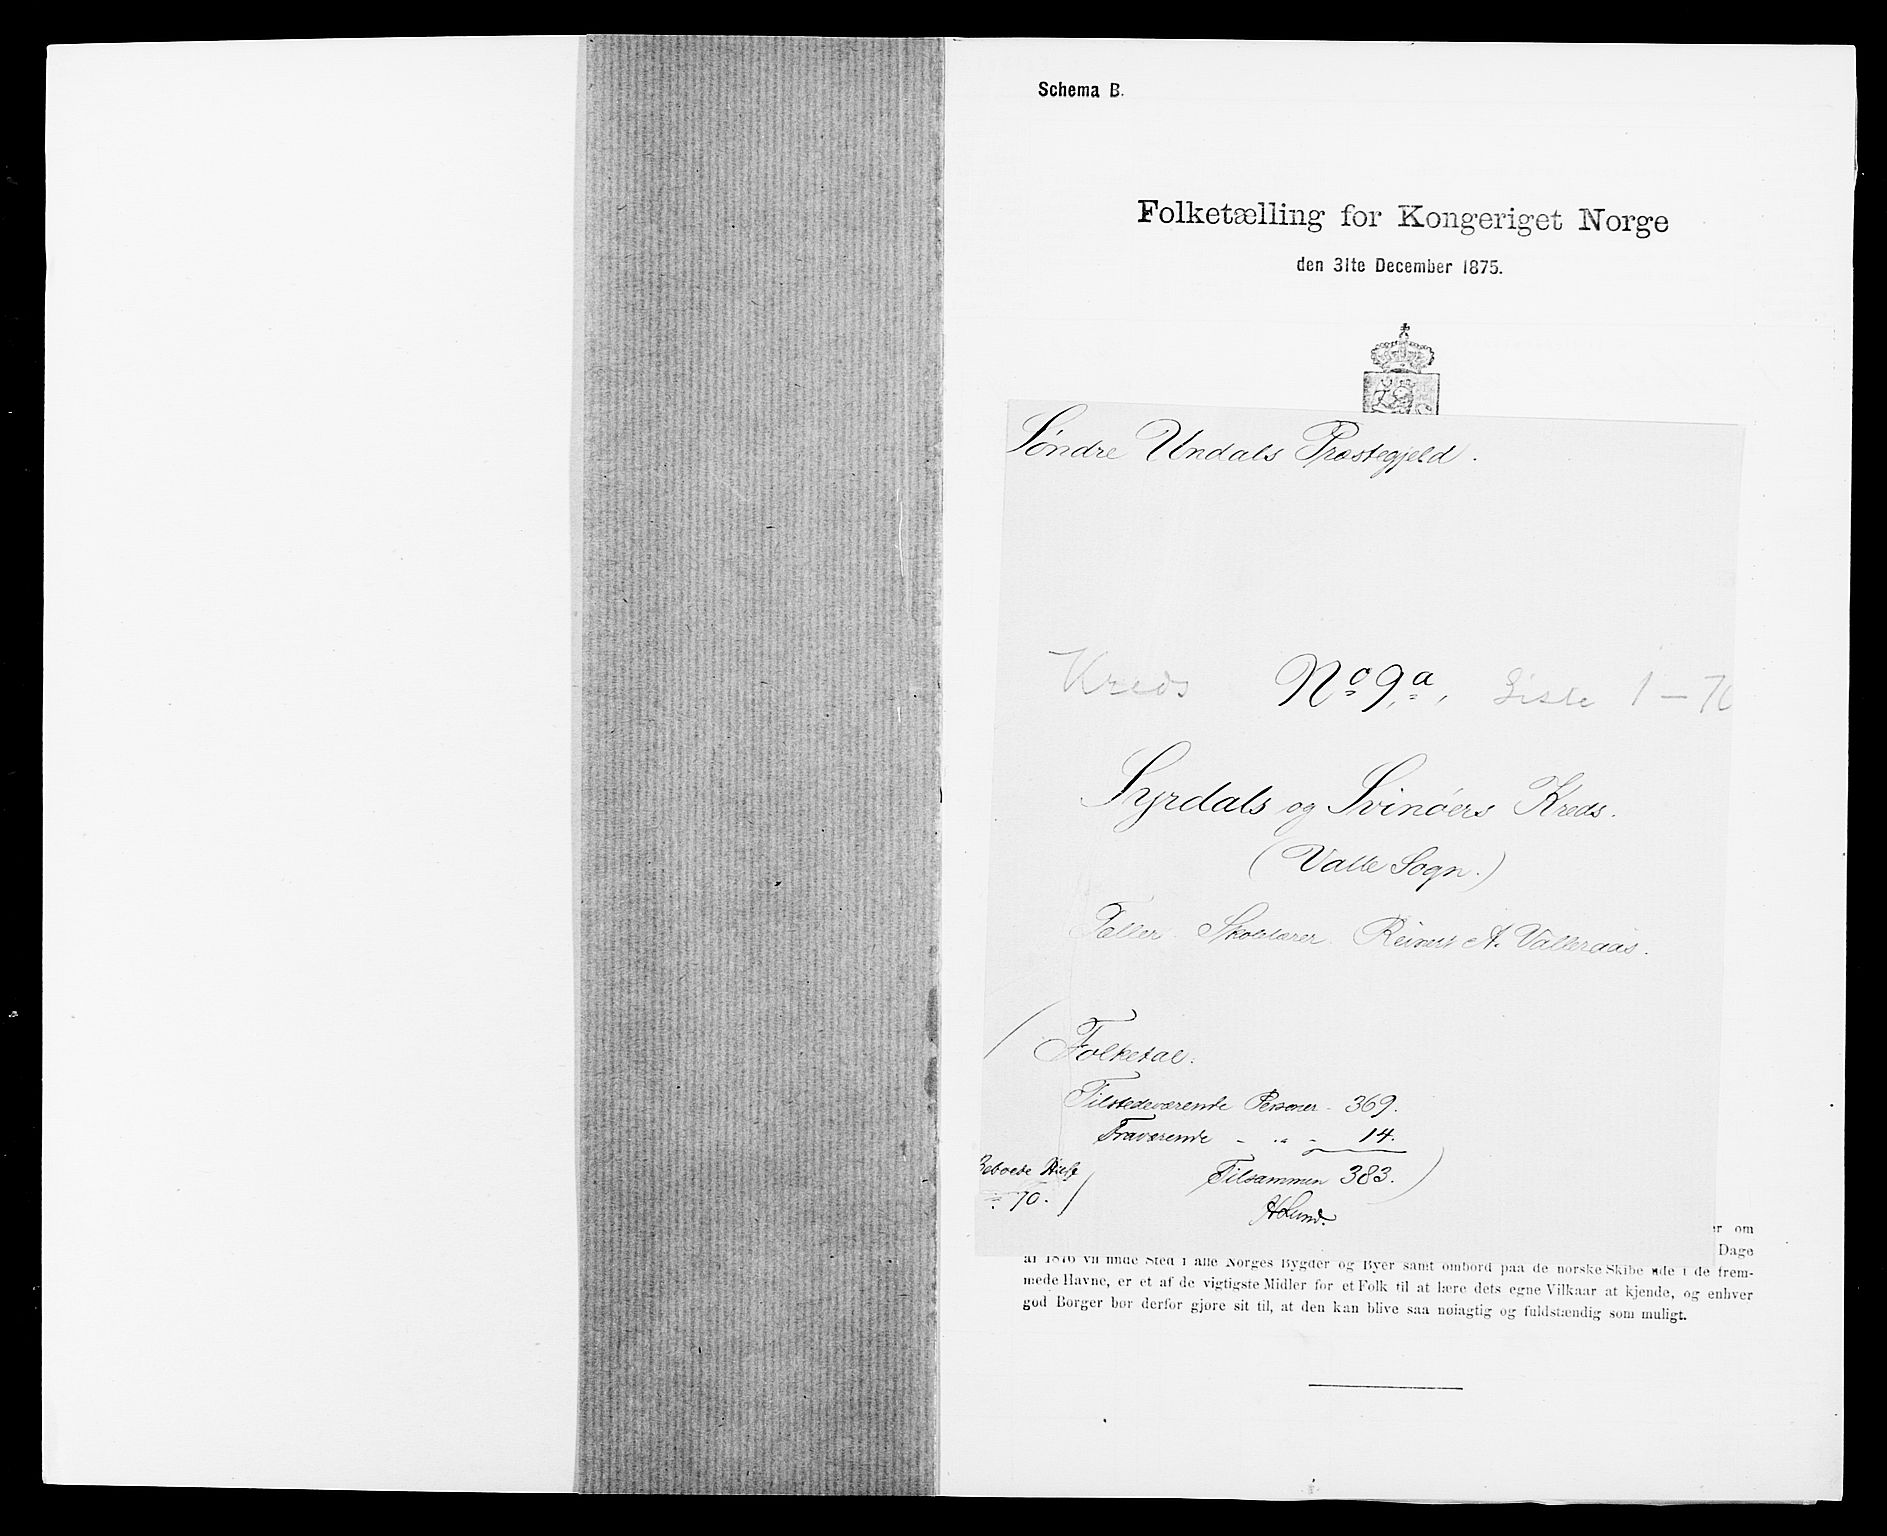 Schema B.
Folketælling for Kongeriget Norge
den 31te December 1875.
Søndre Undals Præstegjeld.
Kreds No 9,a, Liste 1 – 70
Syrdals og Svinøers Kreds.
(Valle Sogn.)
Tæller Skolelærer Reinert A. Valleraas.
Folketal.
Tilstedeværende Personer - 369.
Fraværende - " - 14.
Tilsammen 383.
Beboede Huse
70.
H Lund.
er om
Dage
af 1876 vil finde Sted i alle Norges Bygder og Byer samt ombord paa de norske Skibe ude i de frem-
mede Havne, er et af de vigtigste Midler for et Folk til at lære dets egne Vilkaar at kjende, og enhver
god Borger bør derfor gjøre sit til, at den kan blive saa nøiagtig og fuldstændig som muligt.